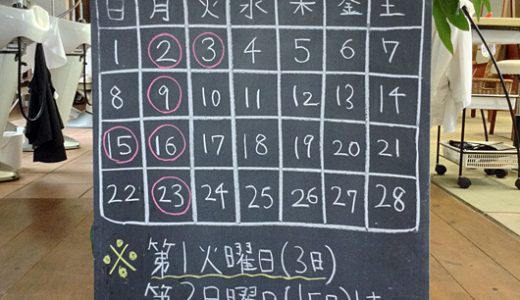 日 月 火 水 木 金 土
1 2 3 4 5 6 7
8 9 10 11 12 13 14
15 16 17 18 19 20 21
22 23 24 25 26 27 28
※ 第1火曜日(3日)
第 日曜日(15日)は